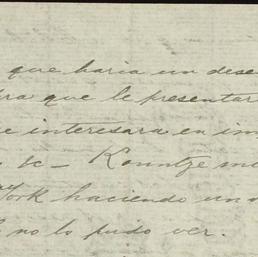 que haria un dese
que le presentar
interesara en im
&c — Kountze me
York haciendo un
no lo pudo ver.